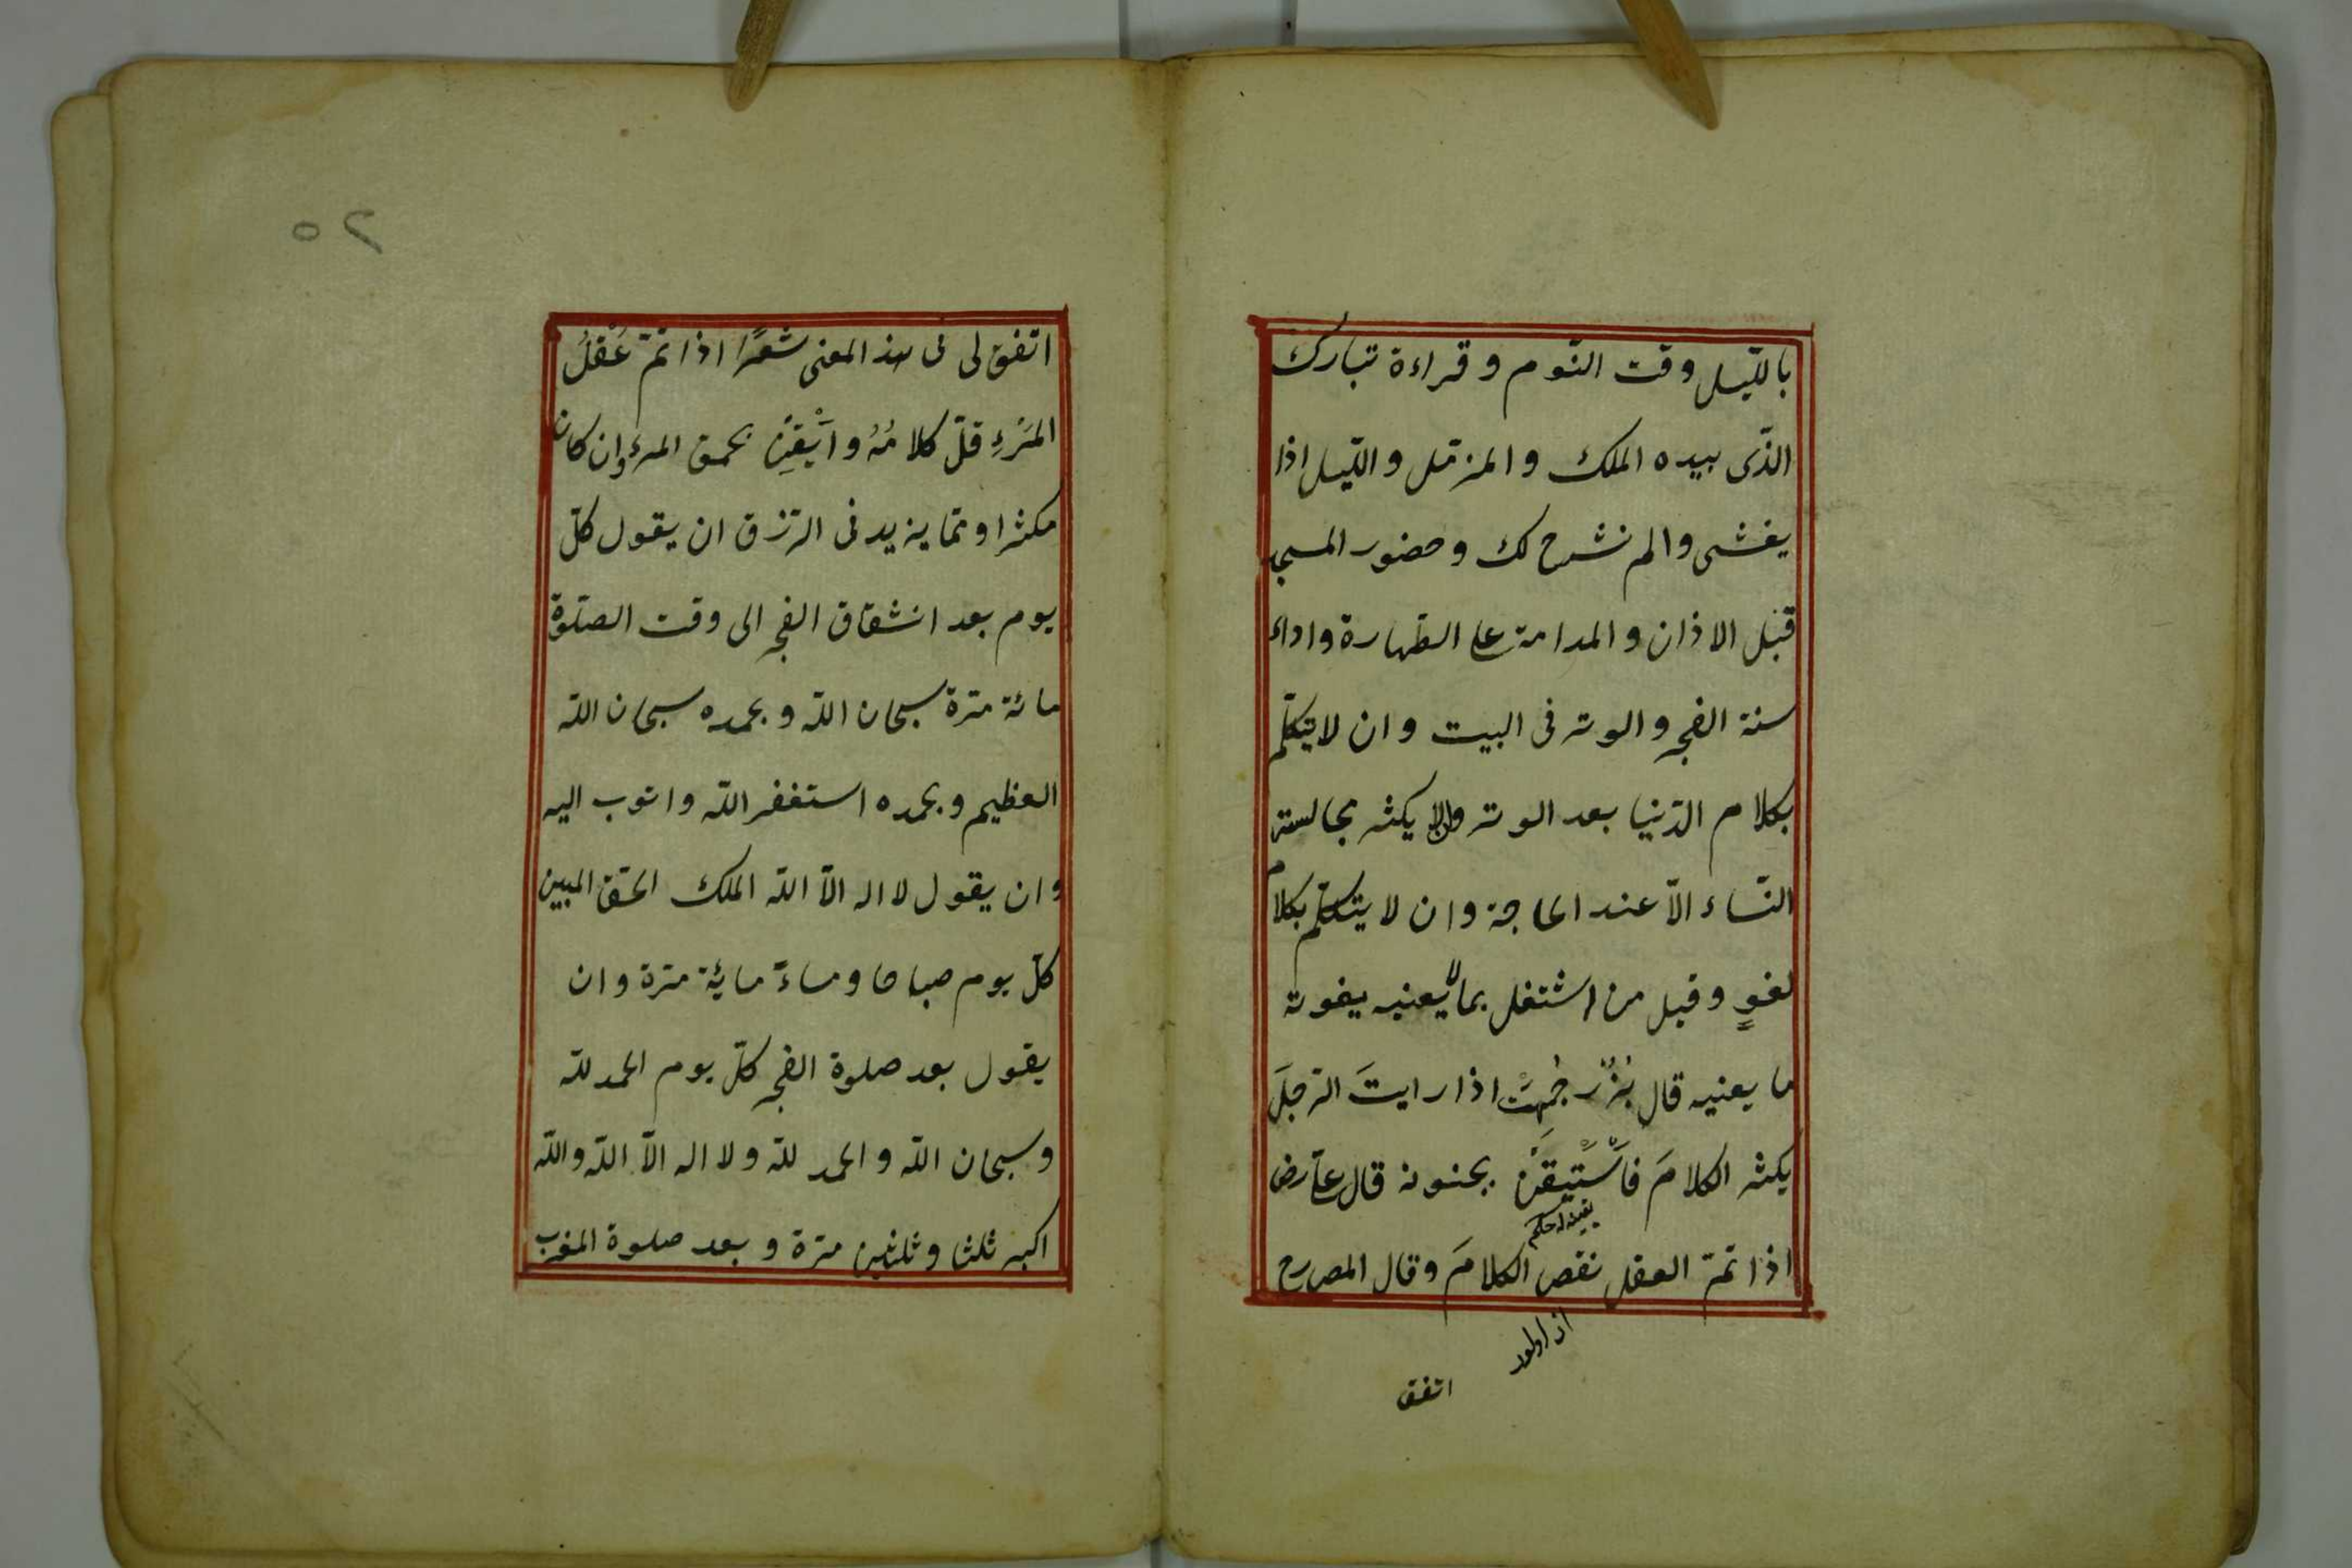 بالليل وقت النّوم و قراءة تبارك
الذّى بيده الملك و المزمّل و الليل اذا
يغشى والم نشرح لك و حضور المسجد
قبل الاذان و المداومة على الطّهارة واداء
سنة الفجر و الوتر فى البيت و ان لا يتكلّم
بكلام الدّنيا بعد الوتر ولا يكثر مجالسة
النّساء الّا عند الحاجة و ان لا يتكلّم بكلام
لغوٍ و قيل من اشتغل بما لا يعنيه يفوته
ما يعنيه قال بُزُرْجُمِهْر اذا رايتَ الرّجلَ
يكثر الكلامَ فاسْتَيقَنْ بجنونه قال على رض
يقينله حكم
اذا تمّ العقل نقص الكلامَ وقال المص رح
از اولور
اتفق
٢٥
اتفق لى فى هذ المعنى شعرًا اذا تمّ عَقْلُ
المَرْءِ قلّ كلامُهُ و اَيْقِنْ بحمق المرء وان كان
مكثرا و ممّا يزيد فى الرّزق ان يقول كلّ
يوم بعد انشقاق الفجر الى وقت الصّلوة
مائة مرّة سبحان اللّه و بحمده سبحان اللّه
العظيم و بحمده استغفر اللّه و اتوب اليه
و ان يقول لا اله الّا اللّه الملك الحقّ المبين
كلّ يوم صباحا و مساءً مائة مرّة و ان
يقول بعد صلوة الفجر كلّ يوم الحمد للّه
و سبحان اللّه و الحمد للّه و لا اله الّا اللّه واللّه
اكبر ثلثا و ثلثين مرّة و بعد صلوة المغرب